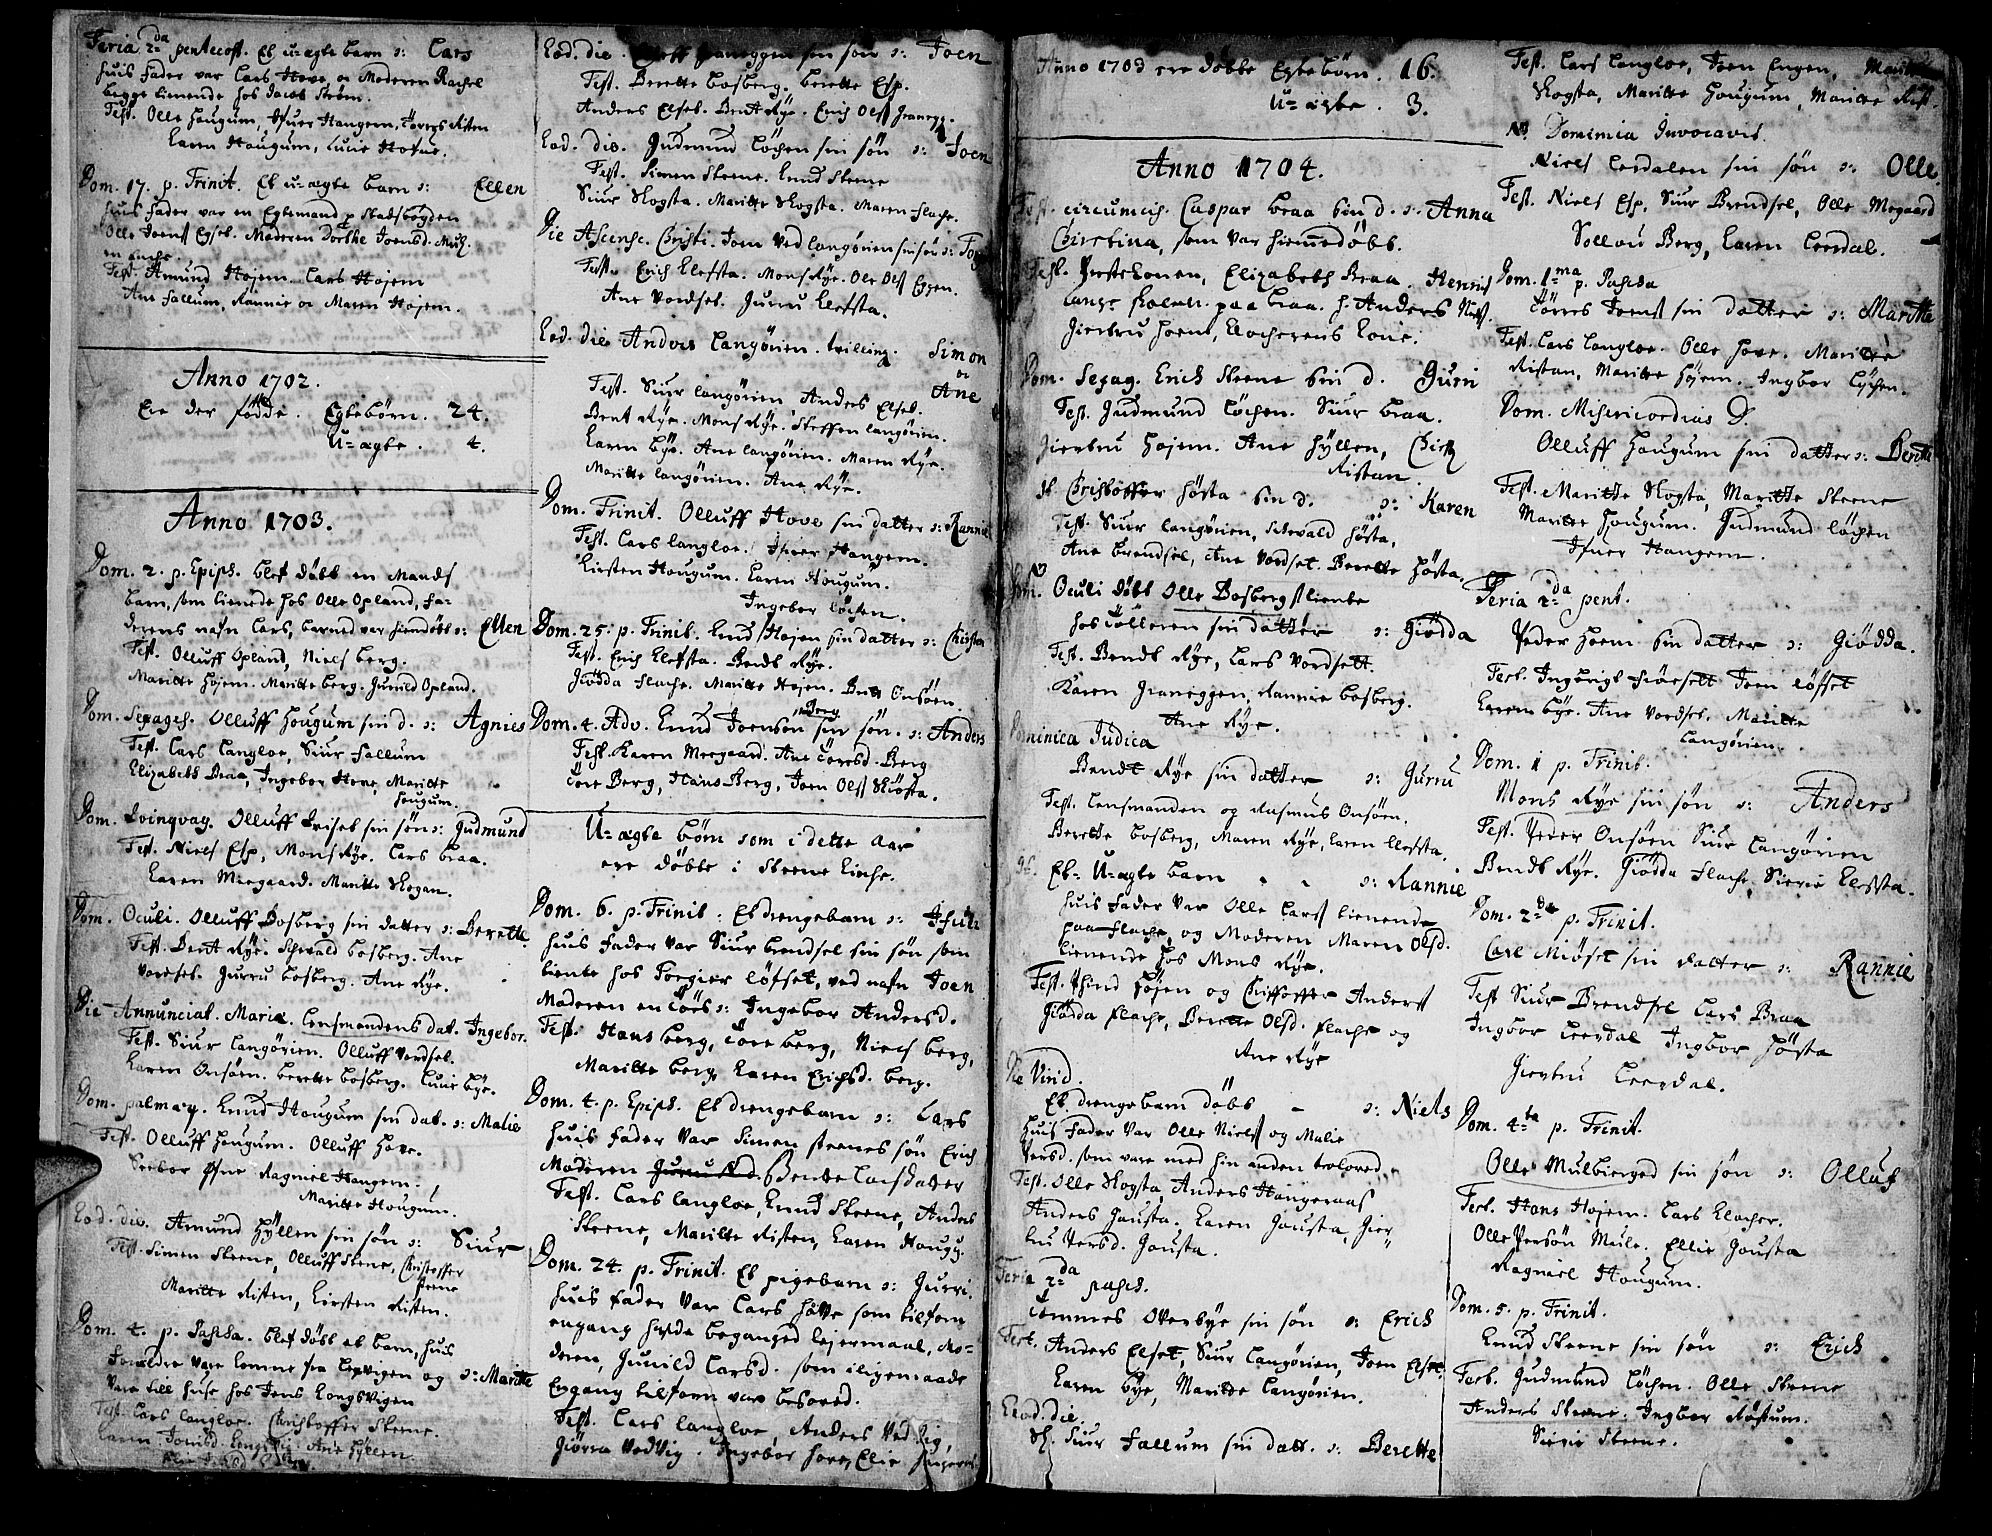 Feria 2da pentecost. Et u-ægte barn n: Lars
huis fader var Lars Hove, oc Moderen Rachel
begge tienende hos Jacob Strøm.
Test. Olle Hougum, Ifuer Hangem, Torris Risten
Karen Hougum, Lucie Hofue.
Dom. 17. p. Trinit. Et u-ægte barn n: Ellen
huis fader var en Egtemand p Stadsbøgden
Olle Joens Egset. Moderen Dorthe Joensd.
Test. Amund Hojem. Lars Hojem
Ane Fallum, Rannie oc Maren Hojem.
Anno 1702.
Ere der fødde. Egtebørn. 24.
U-ægte. 4.
Anno 1703.
Dom. 2. p. Epiph. blef døbt en Mands
barn, som tienede hos Olle Opland, fa-
derens nafn Lars, barned var hiemdøbt n: Ellen
Test. Olluff Opland, Niels berg.
Maritte Hojem. Maritte berg. Gunild Opland.
Dom. Sexages. Olluff Hougum sin d. n: Agnies
Test. Lars Langloe, Siur Fallum
Elizabeth Braa, Ingebor Hove, Maritte
Hougum.
Dom. Qvinqvag. Olluff Triset sin søn n: Gudmund
Test. Niels Esp, Mons Rye. Lars braa.
Karen Meegaard. Maritte Skogan.
Dom. Oculi. Olluff Bosberg sin datter n: Berette.
Test. Bent Rye. Sehvald bosberg. Ane
Vordset. Gurru bosberg. Ane Rye.
Die Annunciat. Mariæ. Lensmandens dat. Ingebor.
Test. Siur Langørien. Olluff Vordset.
Karen Onsøen. berette bosberg. Lucie bye.
Dom. palmar. Knud Hougum sin dat. n: Malie
Test. Olluff Hougum. Olluff Hove.
Ragniel Hangem.
Maritte Hougum.
Eod. die. Amund Hyllen sin søn n: Siur
Test. Simen Steene, Olluff Steene, Christoffer
Steene
Maritte Risten, Kirsten Risten.
Dom. 4. p. Pascha. blef døbt et barn, huis
foreldre vare komne fra Lexvigen og n: Maritte
vare till huse hos Jens Kongsvigen
Test. Lars Langloe. Christoffer Steene.
Karen Joensd. Ane Hyllen.
Eod. die. sin søn n: Joen
Test. Berette bosberg. berette Esp.
Anders Elset. Bent Rye. Erich Ols Graneggen.
Eod. die. Gudmund Løchen sin søn n: Joen
Test. Simen Steene. Knud Steene
Siur Skogsta. Maritte Skogsta. Maren Flache.
Die Ascens. Christi. Joen ved Langørien sin søn n:
Test. Erich Klefsta. Mons Rye. Ole Ols Eggen.
Ane Vordset. Gurru Klefsta.
Eod. die Andris Langørien. tvilling. Simon
oc
Ane
Test. Siur Langørien Anders Elset.
Bent Rye. Mons Rye. Steffen Langørien.
Karen bye. Ane Langørien. Maren Rye.
Maritte Langørien. Ane Rye.
Dom. Trinit. Olluff Hove sin datter n: Rannie
Test. Lars Langloe. Ifver Hangem.
Kirsten Hougum. Karen Hougum.
Ingebor Løchen.
Dom. 25. p. Trinit. Knud Hojen sin datter n:
Test. Erich Klefsta. Bendt Rye.
Giødda Flache. Maritte Hojen. Onsøen.
Dom. 4. Adv. Knud Joensøn Berg sin søn. n: Anders
Test. Karen Meegaard. Ane Torresd. Berg
Tore Berg, Hans Berg, Joen Ols Skiøsta.
U-ægte børn som i dette Aar
ere døbte i Steene Kirche.
Dom. 6. p. Trinit: Et drengebarn n:
huis fader var Siur brendset sin søn som
tiente hos Torgier løfset, ved nafn Joen
Moderen en Tøes n: Ingebor Andersd.
Test. Hans berg, Tore berg, Niels berg,
Maritte berg, Karen Erichsd. berg.
Dom. 4. p. Epiph. Et drengebarn n: Lars
huis fader var Simen Steenes søn Erich
Moderen Bente Larsdatter
Test. Lars Langloe, Knud Steene, Anders
Steene, Maritte Risten, Karen Hougum.
Dom. 24. p. Trinit. Et pigebarn n: Gurri.
huis fader var Lars Hotte som tilforn
engang hafde beganged lejermaal, Mo-
deren, Gunild Larsd. som iligemaade
Engang tilforn var besoved.
Test. Lars Langloe, Anders Ved Vig,
Giørra Ved Vig. Ingebor Hove, Elie
Anno 1703 ere døbte Egtebørn. 16.
U-ægte. 3.
Anno 1704.
Fest. circumcis. Caspar braa sin d. n: Anna
Christina, som var hiemmedøbt.
Test. Prestekonen, Elizabeth Braa. Henrich
Lange paa braa. H. Anders
Giertru Hoem, Klocherens Kone.
Dom. Sexag. Erich Steene sin d. Guri
Test. Gudmund Løchen. Siur braa.
Giertru Hojem. Ane Hyllen,
Ristan.
Christoffer Høsta sin d. n: Karen
Test. Siur Langørien, Sehvald Høsta,
Ane brendset, Ane Vordset. Berette Høsta.
Dom. Oculi døbt Olle Bosberg tiente
hos Tolleren sin datter n: Giødda
Test. Bendt Rye, Lars Vordsett.
Karen Graneggen, Rannie bosberg.
Ane Rye.
Dominica Judica
Bendt Rye sin datter n: Gurru
Test. Lensmanden og Rasmus Onsøen.
Berette bosberg, Maren Rye, Karen Klefsta.
Et U-ægte barn n: Rannie
huis fader var Olle Lars tienende
paa Flache, og Moderen Maren Olsd.
tienende hos Mons Rye.
Test. Højen og Christoffer Anders
Giødda Flache, Berette Olsd. Flache og
Ane Rye
Die Virid.
Et drengebarn døbt n: Niels
huis fader var Olle Niels og Malie
Persd. som vare med hin anden troloved
Test. Olle Skogsta, Anders Hangeraas
Anders Gousta. Karen Gousta, Gier-
tru Persd. Gousta.
Feria 2da pasch.
Tommes Overbye sin søn n: Erich
Test. Anders Elset, Siur Langørien, Joen Elset.
Karen bye, Maritte Langørien.
Eod. die.
Siur Fallum sin datt. n: Berette
Test. Lars Langloe, Joen Engen,
Skogsta, Maritte Hougum, Maritte Rist.
Dominica Invocavit.
Niels Leerdalen sin søn n: Olle.
Test. Niels Esp, Siur Brendset, Olle Megaard
Sollou Berg, Karen Leerdal.
Dom. 1ma p. Pascha
Torres Joens sin datter n: Maritte
Test. Lars Langloe. Olle Hove. Maritte
Ristan, Maritte Høyem. Ingbor Løchen.
Dom. Misericordias D.
Olluff Hougum sin datter n: Berette
Test. Maritte Skogsta, Maritte Steene
Maritte Hougum. Gudmund Løchen
Ifuer Hangem.
Feria 2da pent.
Peder Hoem sin datter n: Giødda.
Test. Ingbrigt Joen løfset
Karen bye. Ane Vordset. Maritte
Langørien.
Dom. 1 p. Trinit.
Mons Rye sin søn n: Anders
Test. Peder Onsøen Siur Langørien
Bendt Rye. Giødda Flache, Siri Klefsta.
Dom. 2da p. Trinit.
Carl Miøset sin datter n: Rannie
Test Siur Brendset Lars Braa
Ingbor Leerdal Ingbor Høsta
Giertru Leerdal.
Dom. 4ta p. Trinit.
Olle Mulbierged sin søn n: Olluf
Test. Hans Hojem. Lars Klocher.
Olle Persøn Mule. Ellie Gousta
Ragniel Hougum.
Dom. 5. p. Trinit.
Knud Steene sin søn n: Erich
Test. Gudmund Løchen. Olle Steene
Anders Steene. Ingbor Røstum.
Sirie Steene.